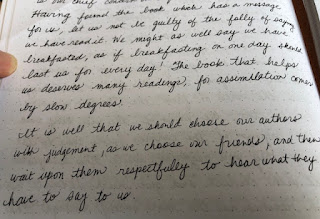 is our chief
Having found the book which has a message
for us, let us not be guilty of the folly of saying
we have read it. We might as well say we have
breakfasted, as if breakfasting on one day should
last us for every day! The book that helps
us deserves many readings, for assimilation comes
by slow degrees.
It is well that we should choose our authors
with judgement, as we choose our friends, and then
wait upon them respectfully to hear what they
have to say to us.